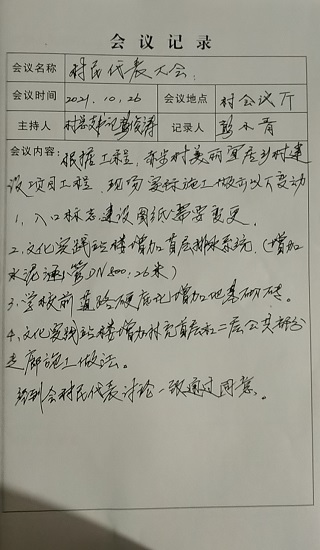 会议记录
会议名称 村民代表大会:
会议时间 2021.10.26 会议地点 村会议厅
主持人 村总支书记 记录人
会议内容: 根据工程,赤步村美丽宜居乡村建
设项目工程 现场实际施工做出以下变动
1、入口标志建设图纸需要变更.
2、文化实践站楼增加首层排水系统.(增加
水泥涵管DN800,26米)
3、学校前道路硬底化增加地基砌砖。
4、文化实践站楼增加补充首层和二层公共部分
走廊施工做法。
经到会村民代表讨论一致通过同意。